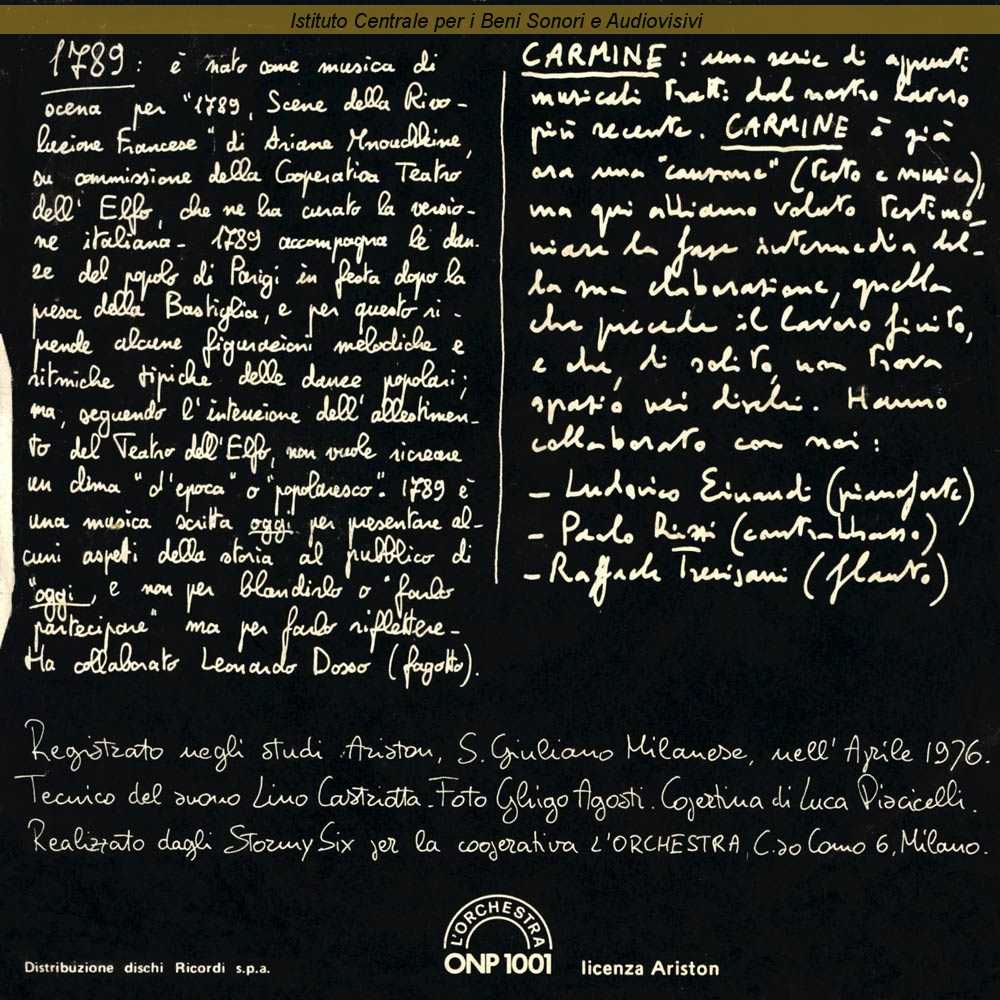 Istituto Centrale per i Beni Sonori e Audiovisivi
1789: è nato come musica di
scena per "1789, Scene della Rivo-
luzione Francese" di Ariane Mnouchkine,
su commissione della Cooperativa Teatro
dell' Elfo, che ne ha curato la versio-
ne italiana - 1789 accompagna le dan-
ze del popolo di Parigi in festa dopo la
presa della Bastiglia, e per questo ri-
prende alcune figurazioni melodiche e
ritmiche tipiche delle danze popolari;
ma, seguendo l'intenzione dell'allestimen-
to del Teatro dell'Elfo, non vuole ricreare
un clima "d'epoca" o "popolaresco". 1789 è
una musica scritta oggi per presentare al-
cuni aspetti della storia al pubblico di
"oggi", e non per blandirlo o "farlo
partecipare" ma per farlo riflettere-
Ha collaborato Leonardo Dosso (fagotto).
CARMINE: una serie di appunti
musicali tratti dal nostro lavoro
più recente. CARMINE è già
ora una "canzone" (testo e musica),
ma qui abbiamo voluto testimo-
niare la fase intermedia del-
la sua elaborazione, quella
che precede il lavoro finito,
e che, di solito, non trova
spazio nei dischi. Hanno
collaborato con noi:
- Ludovico Einaudi (pianoforte)
- Paolo Rizzi (contrabbasso)
- Raffaele Trevisani (flauto)
Registrato negli studi Ariston, S. Giuliano Milanese, nell' Aprile 1976.
Tecnico del suono Lino Castriotta. Foto Ghigo Agosti. Copertina di Luca Piscicelli.
Realizzato dagli Stormy Six per la cooperativa L'ORCHESTRA, C.so Como 6, Milano.
L'ORCHESTRA
ONP 1001
Distribuzione dischi Ricordi s.p.a.
licenza Ariston